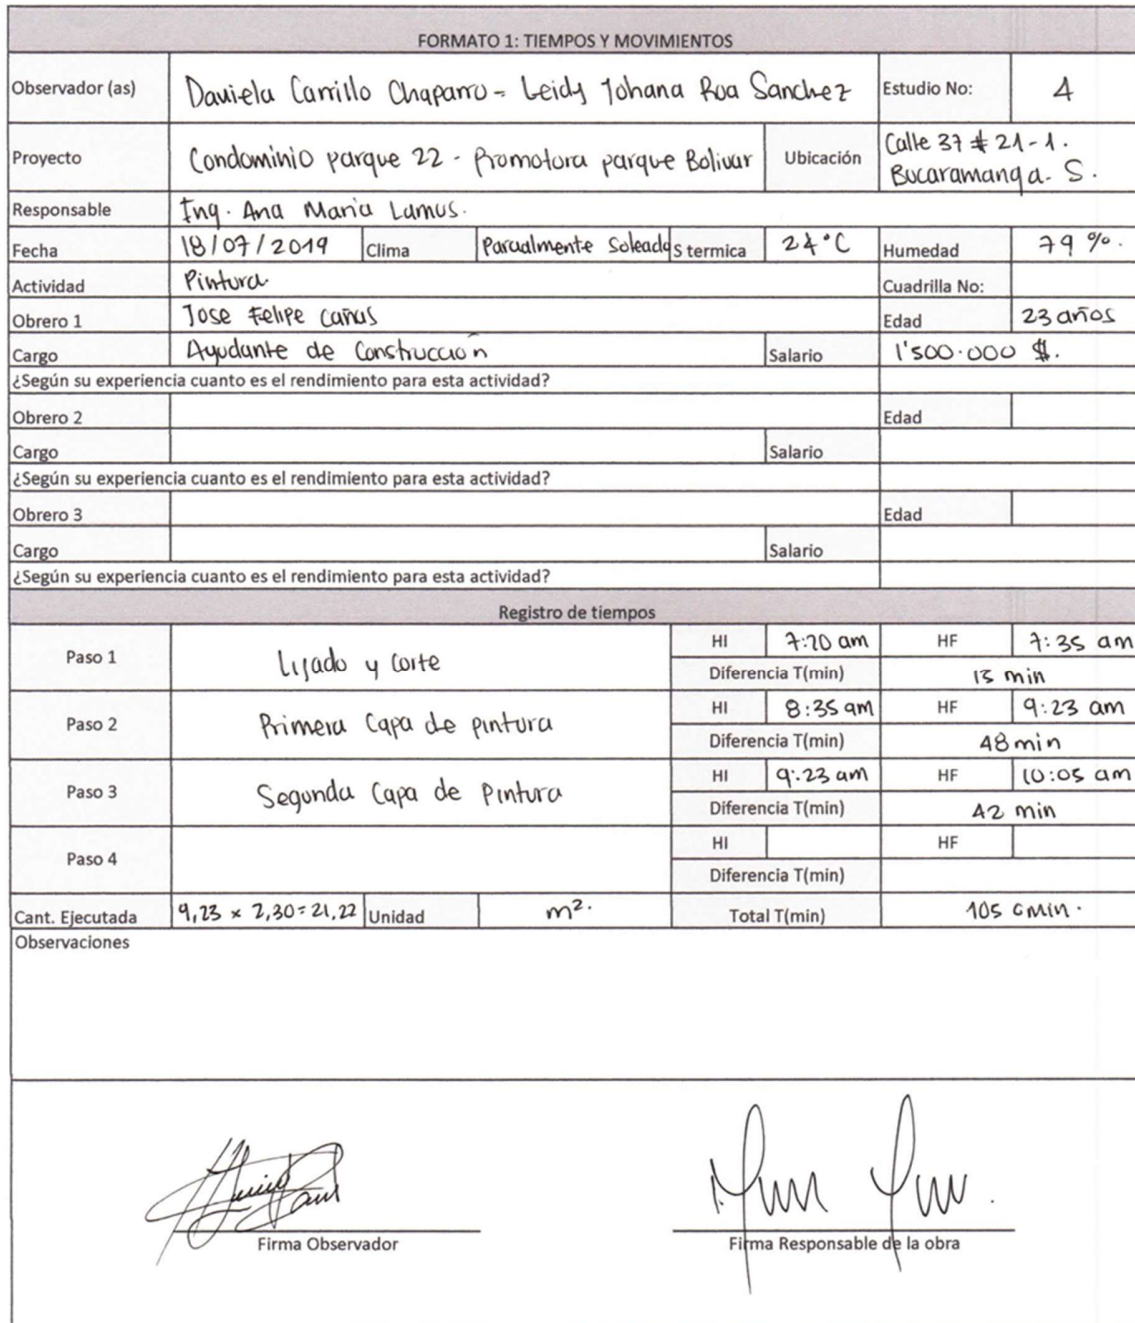 FORMATO 1: TIEMPOS Y MOVIMIENTOS
Observador (as) Daniela Carrillo Chaparro - Leidy Johana Roa Sanchez Estudio No: 4
Proyecto Condominio parque 22 - Promotora parque Bolivar Ubicación Calle 37 # 21-1.
Bucaramanga - S.
Responsable Ing. Ana Maria Lamus.
Fecha 18/07/2019 Clima Parcialmente Soleado S termica 24°C Humedad 79 %.
Actividad Pintura Cuadrilla No:
Obrero 1 Jose Felipe Cañas Edad 23 años
Cargo Ayudante de Construcción Salario 1'500.000 $.
¿Según su experiencia cuanto es el rendimiento para esta actividad?
Obrero 2 Edad
Cargo Salario
¿Según su experiencia cuanto es el rendimiento para esta actividad?
Obrero 3 Edad
Cargo Salario
¿Según su experiencia cuanto es el rendimiento para esta actividad?
Registro de tiempos
Paso 1 Lijado y corte HI 7:20 am HF 7:35 am
Diferencia T(min) 15 min
Paso 2 Primera Capa de pintura HI 8:35 am HF 9:23 am
Diferencia T(min) 48 min
Paso 3 Segunda Capa de Pintura HI 9:23 am HF 10:05 am
Diferencia T(min) 42 min
Paso 4 HI HF
Diferencia T(min)
Cant. Ejecutada 9,23 x 2,30 = 21,22 Unidad m². Total T(min) 105 min.
Observaciones
Firma Observador Firma Responsable de la obra